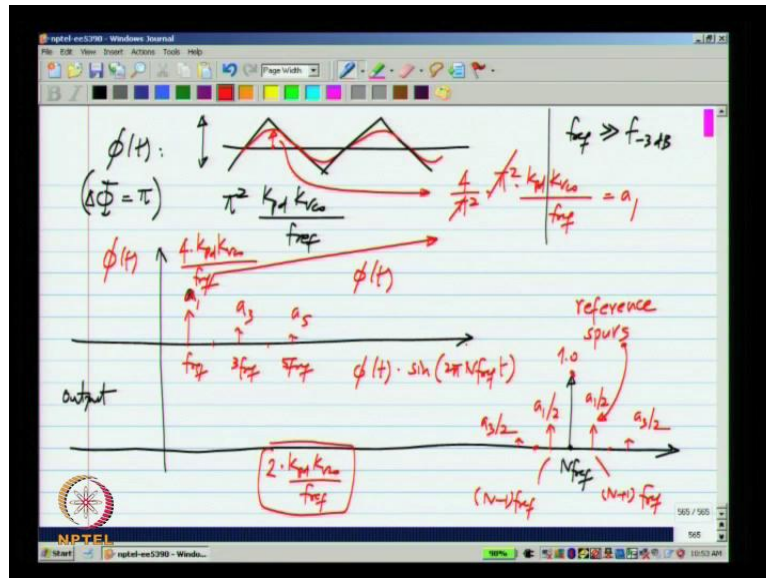 nptel-ee5390 - Windows Journal
File Edit View Insert Actions Tools Help
Page Width
ϕ(t) :
(ΔΦ = π)
π² K_pd K_vco / f_ref
4/π² · π² · K_pd K_vco / f_ref = a₁
f_ref ≫ f_-3dB
ϕ(t)
4 · K_pd K_vco / f_ref
ϕ(t)
a₁ a₃ a₅
f_ref 3f_ref 5f_ref
ϕ(t) · sin(2π N f_ref t)
reference
spurs
output
1.0
a₃/2 a₁/2 a₁/2 a₃/2
(N-1) f_ref N f_ref (N+1) f_ref
2 · K_pd K_vco / f_ref
565 / 565
565
NPTEL
Start nptel-ee5390 - Windo...
90%
10:53 AM